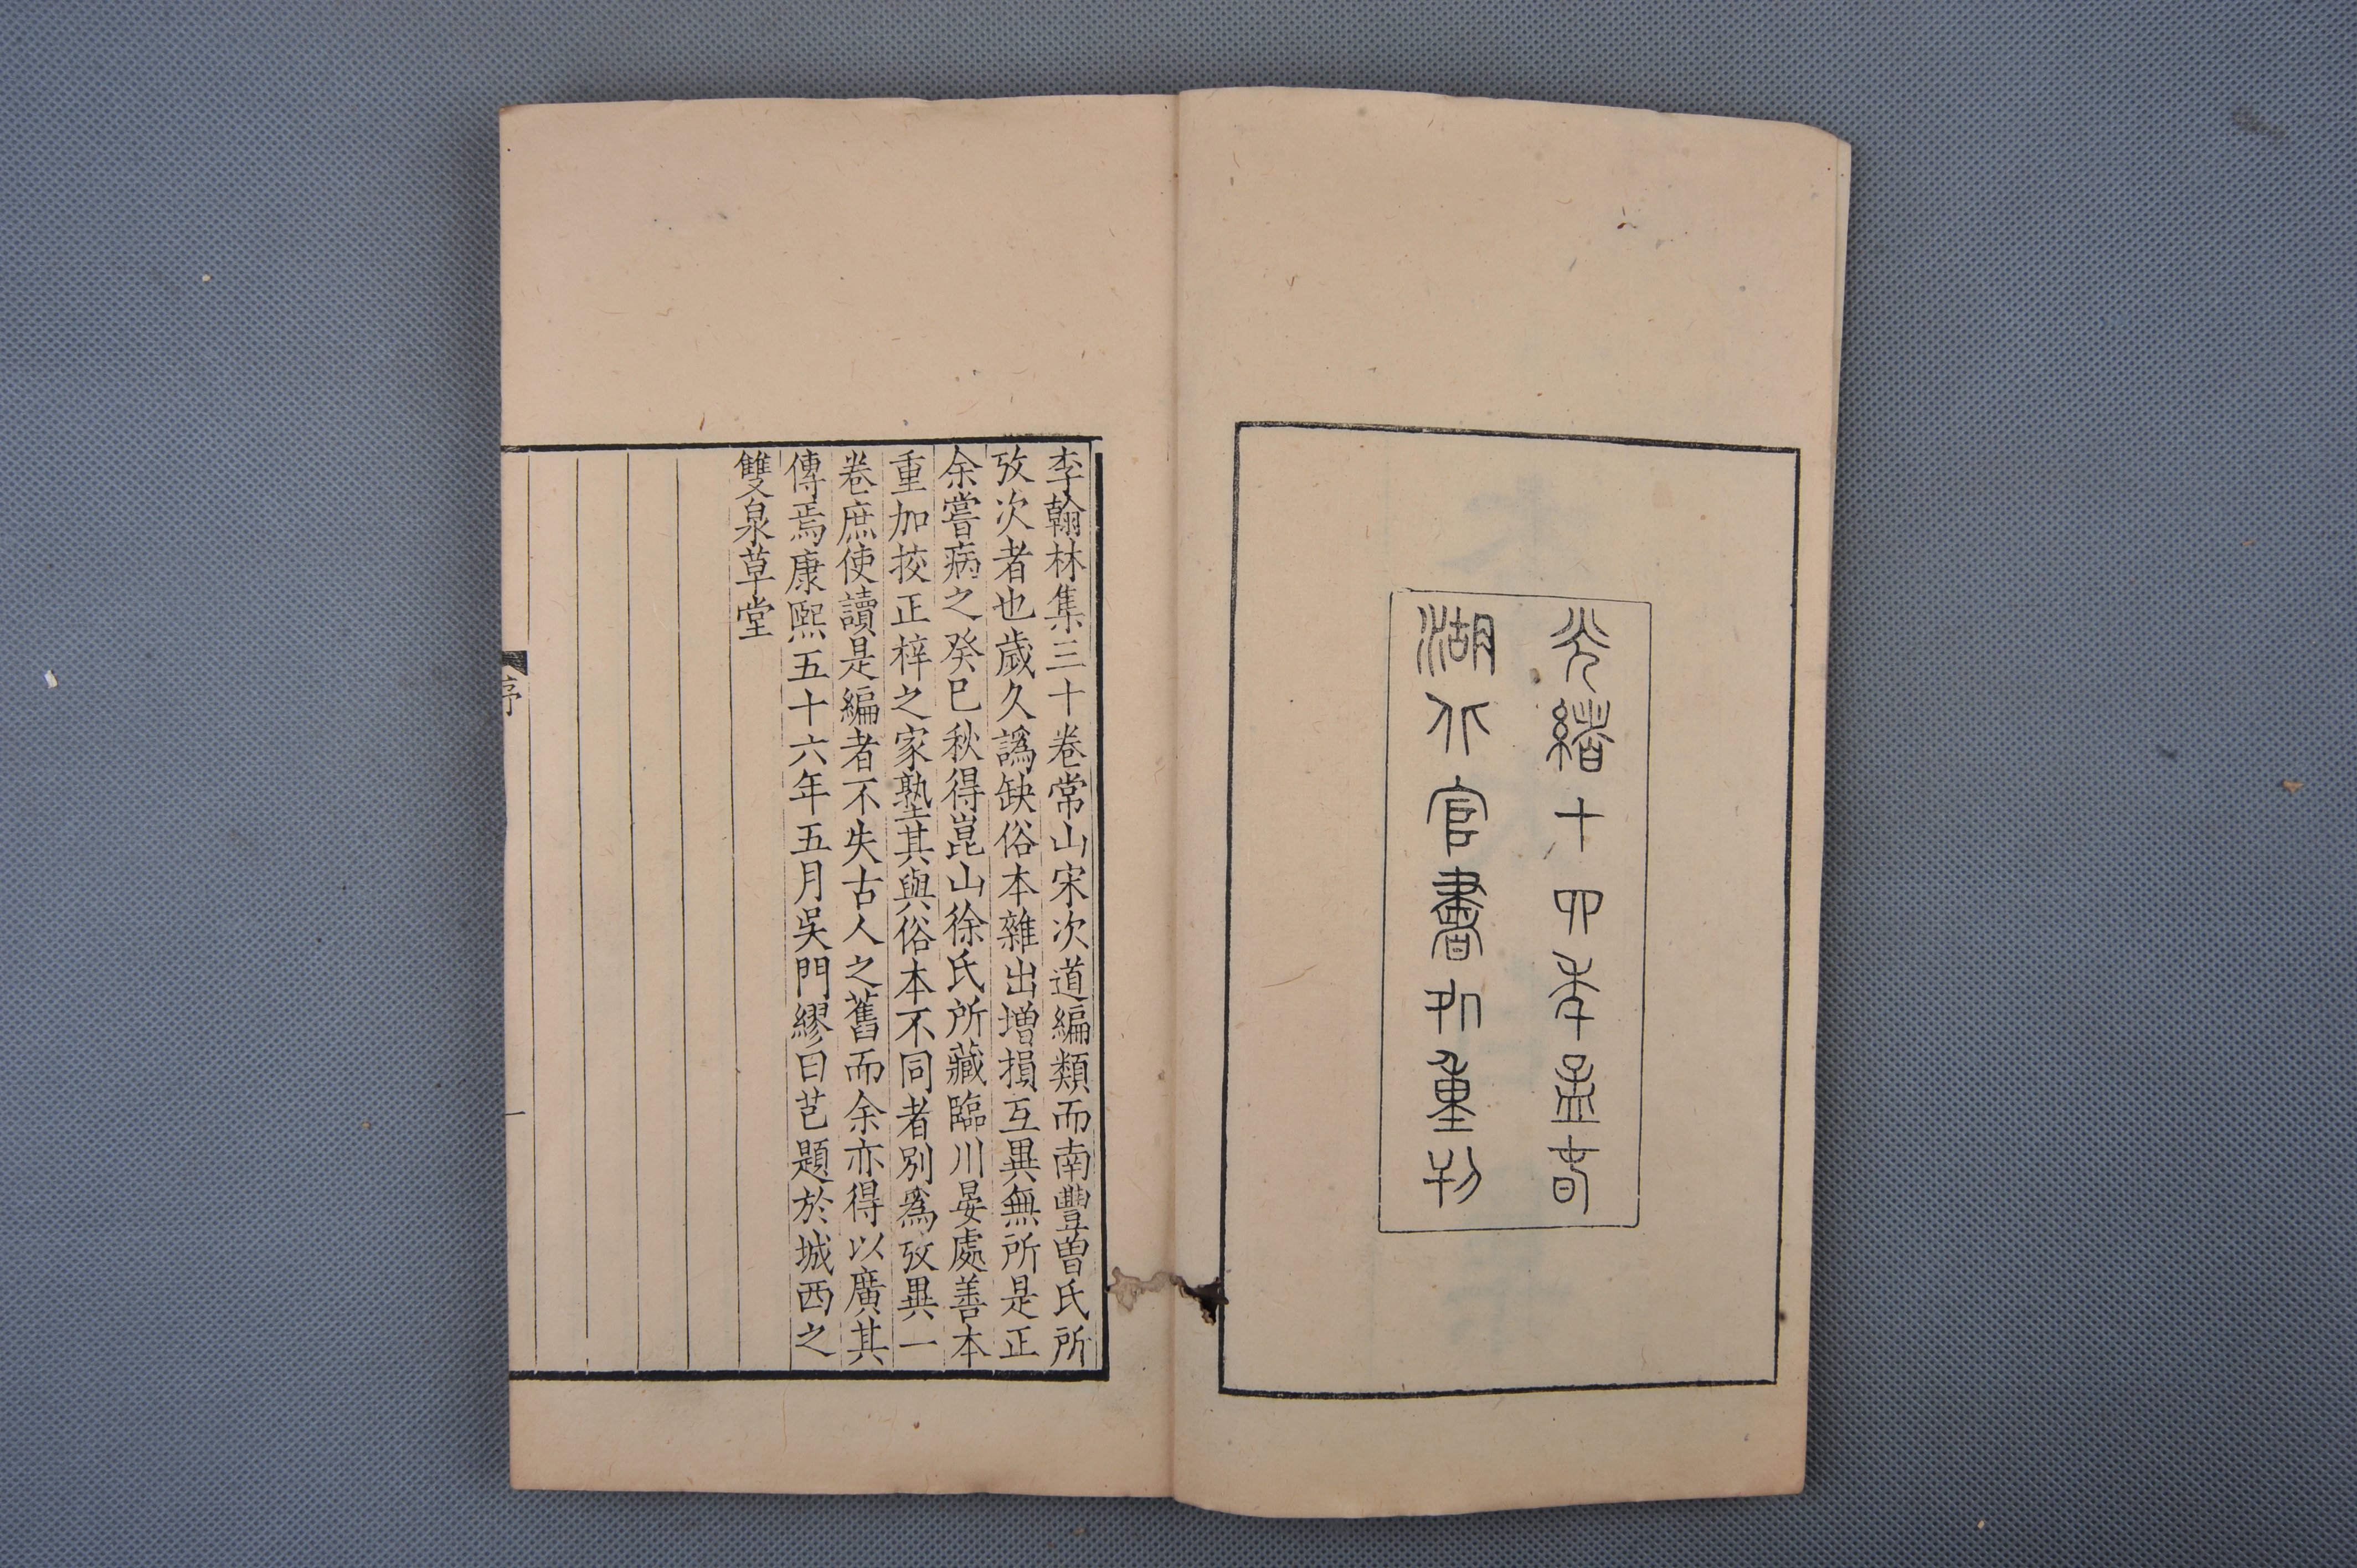 光緒十四年孟春
湖北官書処重刊
李翰林集三十卷常山宋次道編類而南豐曽氏所
攷次者也歲久譌缺俗本雜出增損互異無所是正
余嘗病之癸巳秋得崑山徐氏所藏臨川晏處善本
重加挍正梓之家塾其與俗本不同者別為攷異一
卷庶使讀是編者不失古人之舊而余亦得以廣其
傳焉康熙五十六年五月吳門繆曰芑題於城西之
雙泉草堂
序
一